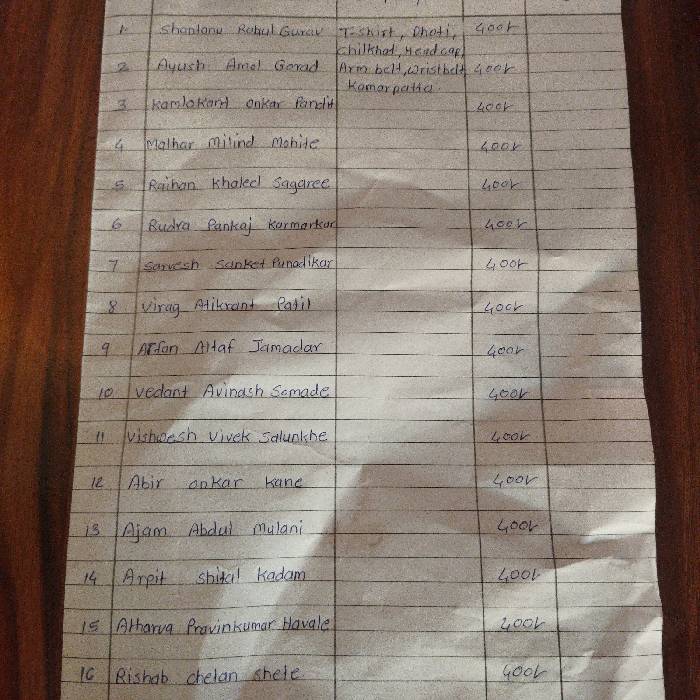 1 Shantanu Rahul Gurav T-shirt, Dhoti, 400/-
chilkhat, Head cap,
2 Ayush Amol Gorad Arm belt, wristbelt 400/-
Kamarpatta.
3 Kamlakant Onkar Pandit 400/-
4 Malhar Milind Mohite 400/-
5 Raihan Khaleel Sagaree 400/-
6 Rudra Pankaj Karmarkar 400/-
7 Sarvesh Sanket Punadikar 400/-
8 Virag Atikrant Patil 400/-
9 Arfan Altaf Jamadar 400/-
10 Vedant Avinash Samade 400/-
11 Vishwesh Vivek Salunkhe 400/-
12 Abir onkar kane 400/-
13 Ajam Abdul Mulani 400/-
14 Arpit shital kadam 400/-
15 Atharva Pravinkumar Havale 400/-
16 Rishab chetan shete 400/-